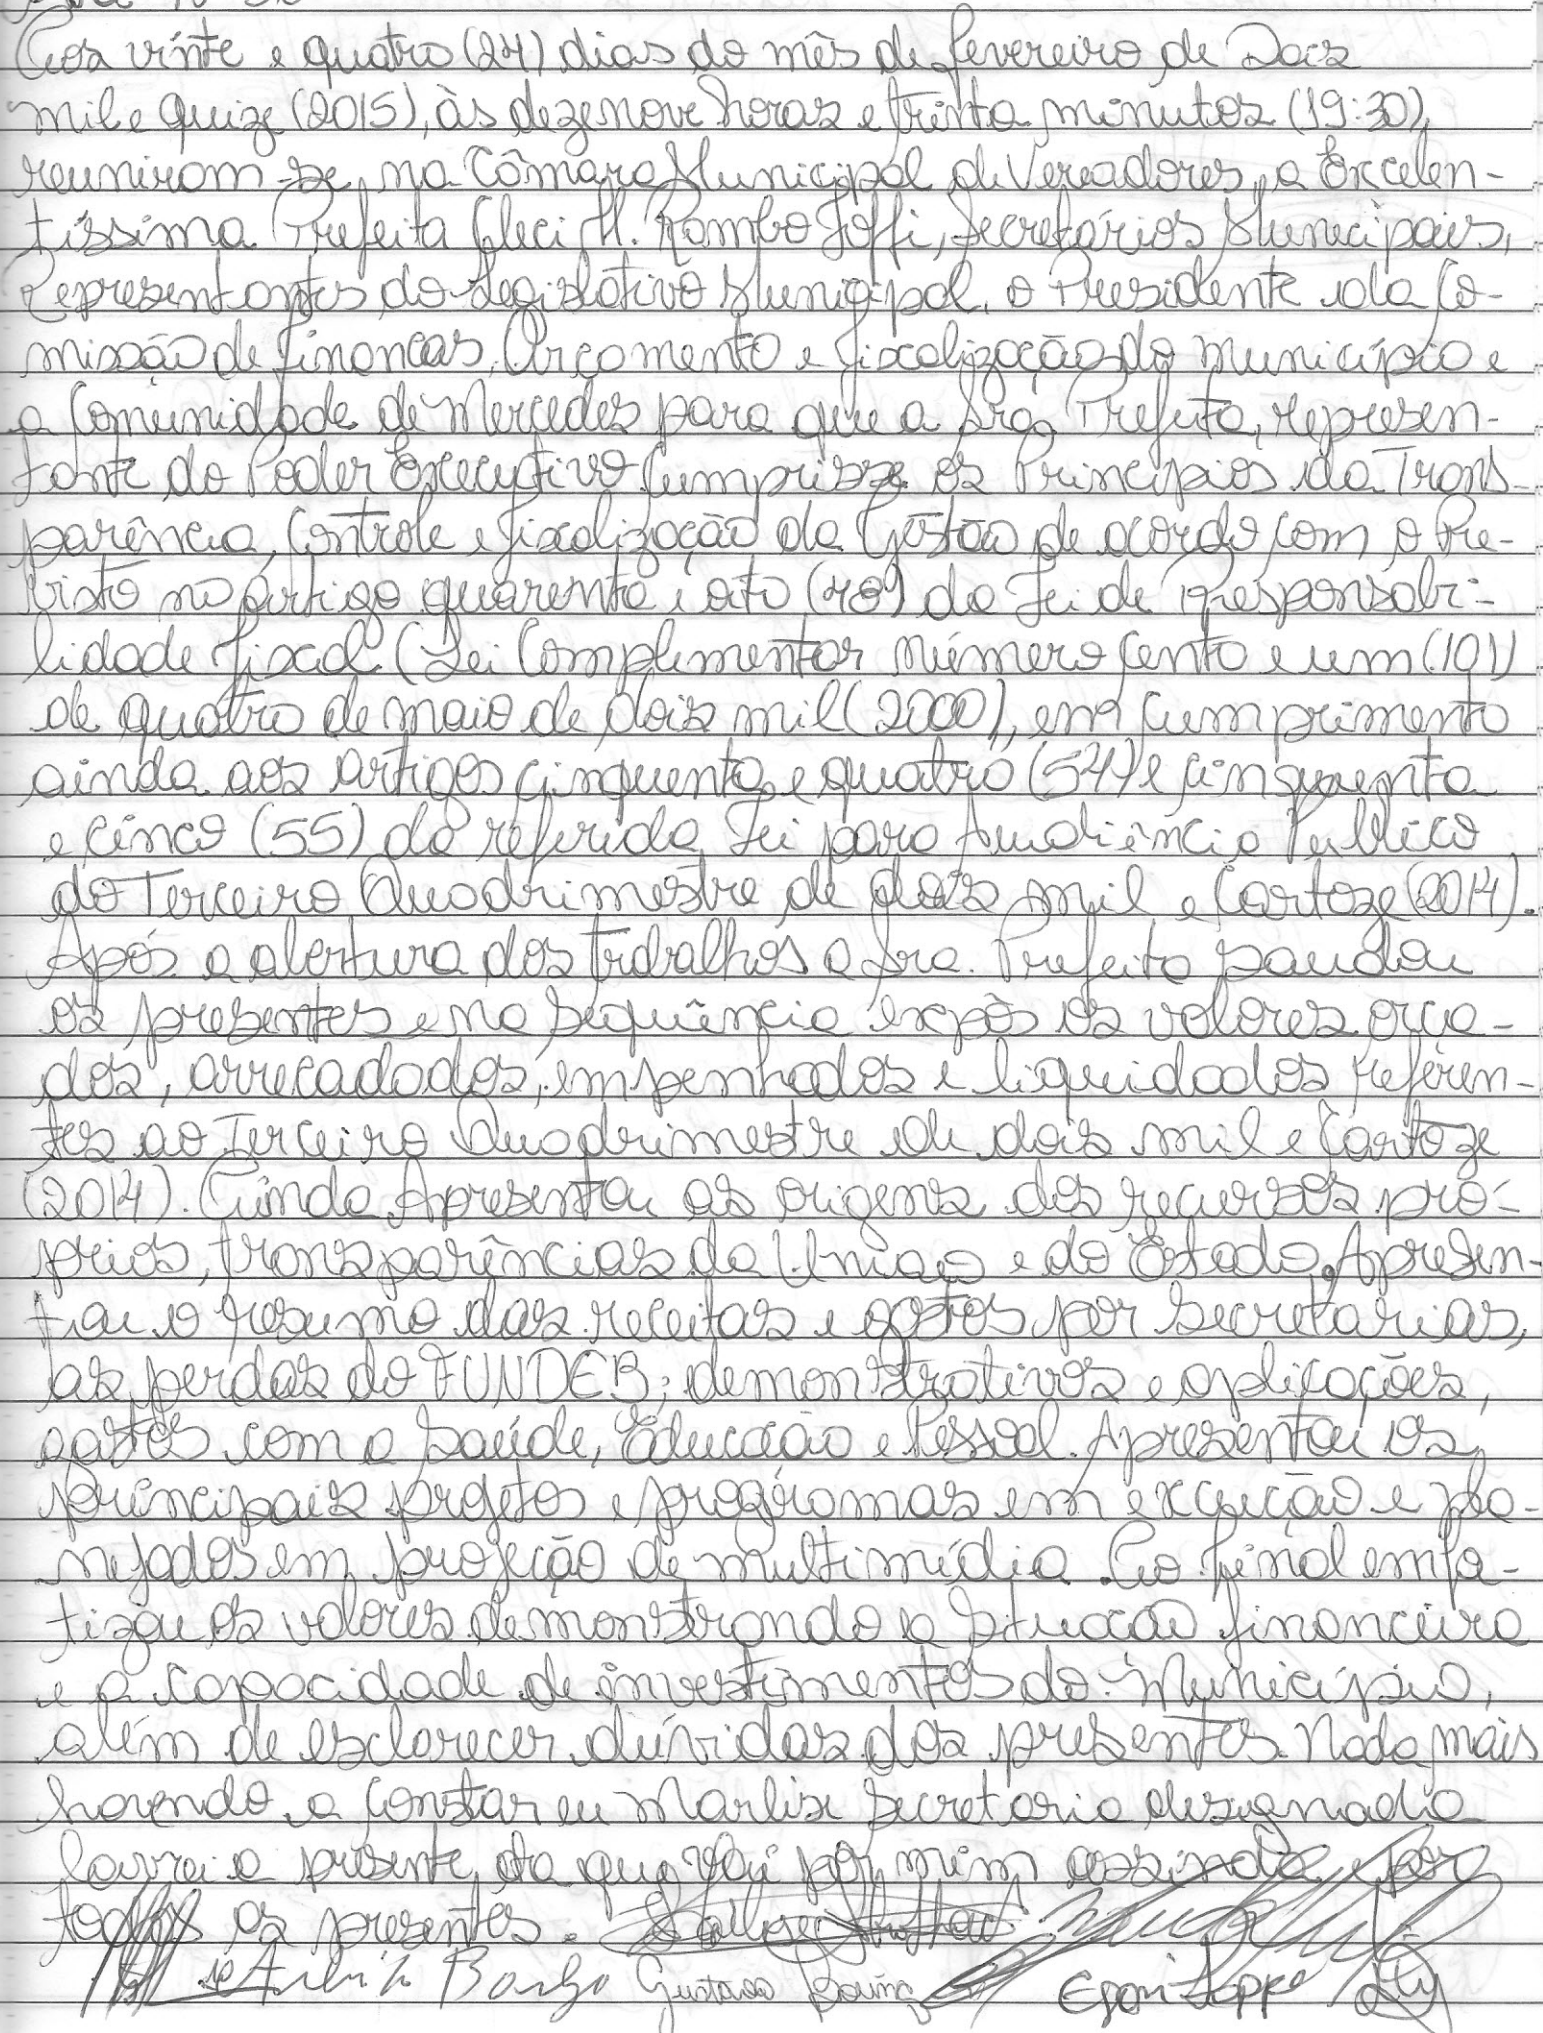 Aos vinte e quatro (24) dias do mês de fevereiro de Dois
mil e quize (2015), às dezenove horas e trinta minutos (19:30),
reuniram-se, na Câmara Municipal de Vereadores, a Excelen-
tíssima Prefeita Cleci M. Rambo Loffi, Secretários Municipais,
Representantes do Legislativo Municipal, o Presidente da Co-
missão de finanças, Orçamento e fiscalização do município e
a Comunidade de Mercedes para que a Sra. Prefeita, represen-
tante do Poder Executivo Cumprisse os Princípios da Trans-
parência, Controle e fiscalização da Gestão de acordo com o Pre-
visto no artigo quarenta e oito (48) da Lei de Responsabi-
lidade fiscal (Lei Complementar número Cento e um (101)
de quatro de maio de dois mil (2000), em Cumprimento
ainda aos artigos cinquenta e quatro (54) e cinquenta
e cinco (55) da referida Lei para Audiência Pública
do Terceiro Quadrimestre de dois mil e Cartoze (2014).
Após a abertura dos trabalhos a Sra. Prefeita saudou
os presentes e na sequência expôs os valores orça-
dos, arrecadados, empenhados e liquidados referen-
tes ao Terceiro Quadrimestre de dois mil e Cartoze
(2014). Ainda Apresentou as origens dos recursos pró-
prios, transparências da União e do Estado, Apresen-
tou o resumo das receitas e gastos por Secretarias,
as perdas do FUNDEB; demonstrativos e aplicações,
gastos com a Saúde, Educação e Pessoal. Apresentou os
principais projetos e programas em execução e pla-
nejados em projeção de multimídia. Ao final enfa-
tizou os valores demonstrando a Situação financeira
e a capacidade de investimentos do Município,
além de esclarecer dúvidas dos presentes. Nada mais
havendo a Constar eu Marlise Secretaria designada
lavrei a presente ata que vai por mim assinada e por
todos os presentes.
Borgo Gustavo Egon Lappe